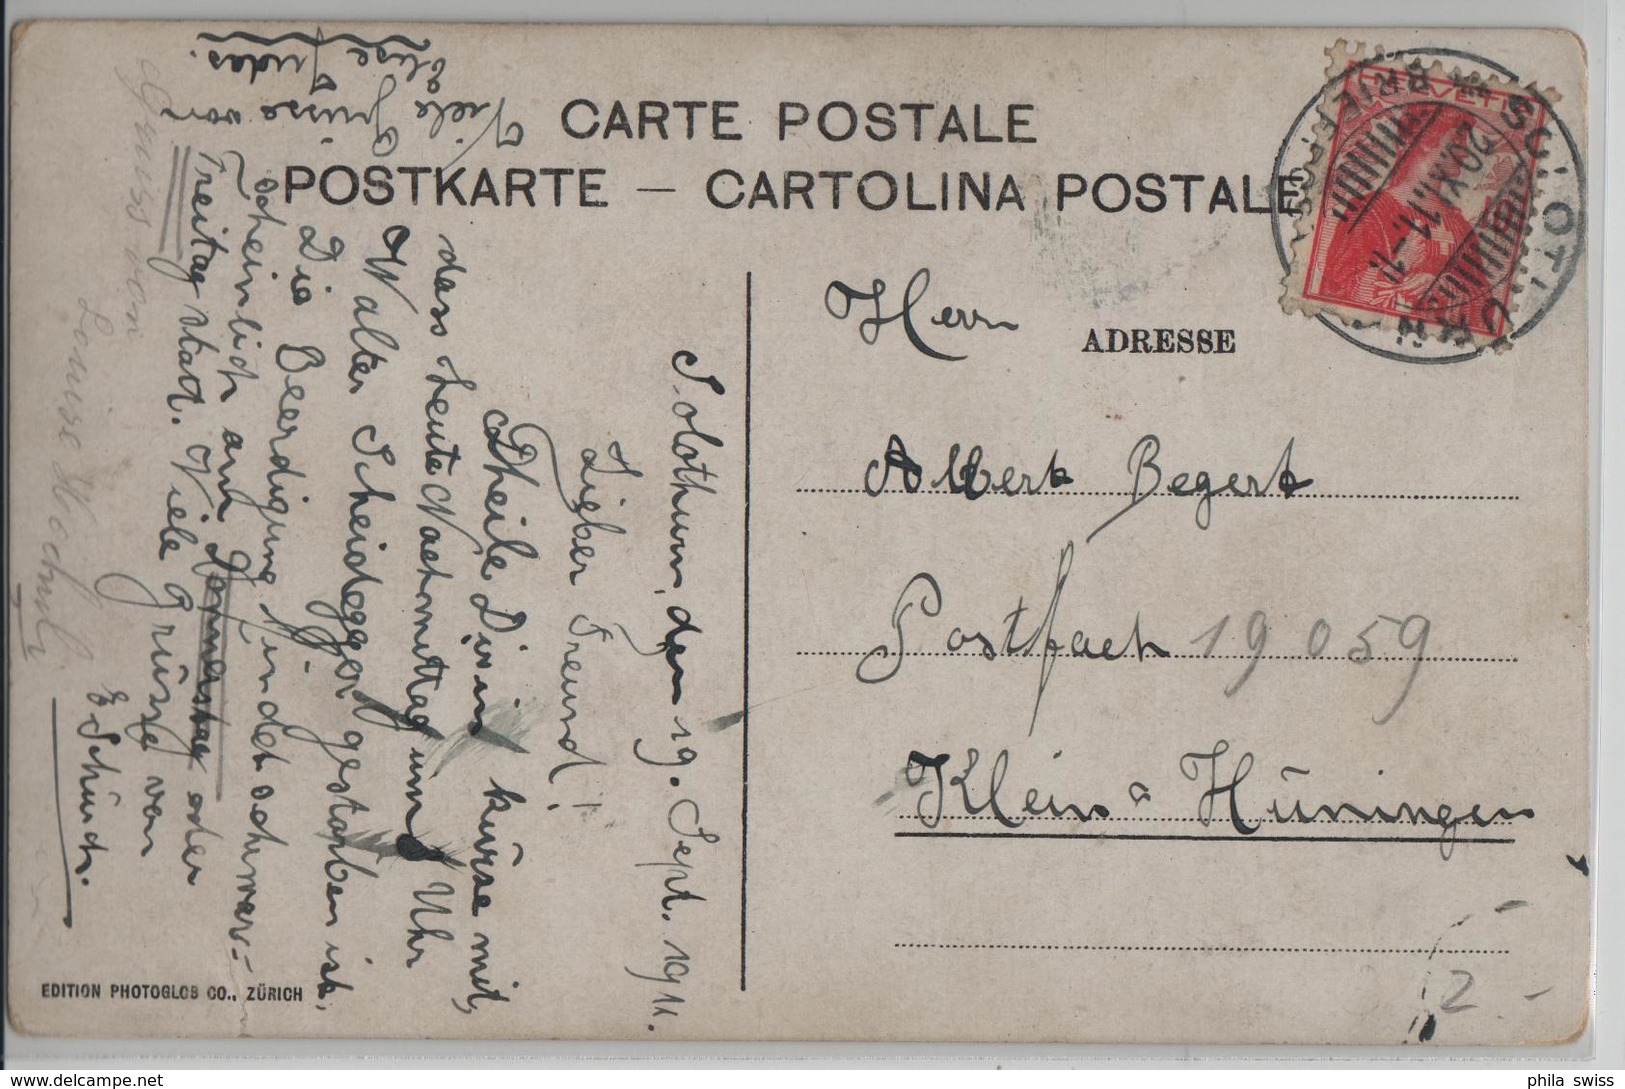 CARTE POSTALE
POSTKARTE — CARTOLINA POSTALE
ADRESSE
Herrn
Albert Begert
Postfach 19059
Klein-Hüningen
2
HELVETIA
SOLOTHURN
BRIEFPOST
20.XI.11.-11.
Solothurn, den 19. Sept. 1911.
Lieber Freund!
Theile Dir in kürse mit,
dass heute Nachmittag um Uhr
Walter Scheidegger gestorben ist.
Die Beerdigung findet schwar-
scheinlich am Donnerstag oder
Freitag statt. Viele Grüsse von
E. Schürch.
Viele Grüsse von
Gruss von
Louise Hochuli
EDITION PHOTOGLOB CO., ZÜRICH
phila swiss